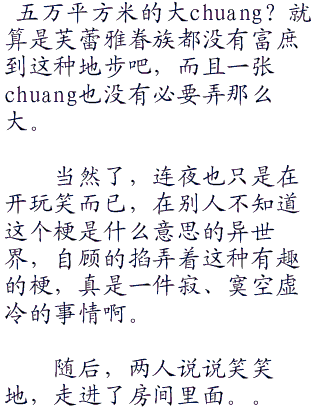 五万平方米的大chuang？就
算是芙蕾雅眷族都没有富庶
到这种地步吧，而且一张
chuang也没有必要弄那么
大。
当然了，连夜也只是在
开玩笑而已，在别人不知道
这个梗是什么意思的异世
界，自顾的掐弄着这种有趣
的梗，真是一件寂、寞空虚
冷的事情啊。
随后，两人说说笑笑
地，走进了房间里面。。